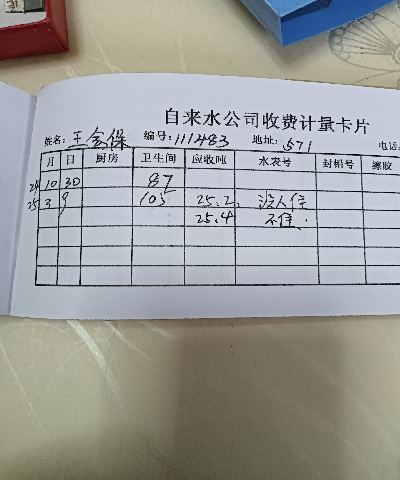 自来水公司收费计量卡片
姓名: 王会保 编号: 111483 地址: 571 电话:
月 日 厨房 卫生间 应收吨 水表号 封铅号 擦胶
24 10 30 87
25 3 9 105 25.2. 没人住
25.4 不住.